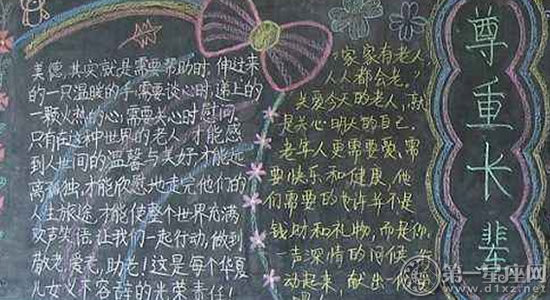 美德,其实就是需要帮助时,伸过来
的一只温暖的手,需要谈心时,递上的
一颗火热的心;需要关心时慰问.
只有在这种世界的老人,才能感
到人世间的温馨与美好才能远
离孤独,才能欣慰地走完他们的
人生旅途,才能使整个世界充满
欢声笑语,让我们一起行动,做到
敬老,爱老,助老!这是每个华夏
儿女义不容辞的光荣责任!
"家家有老人,
人人都会老。"
关爱今天的老人,就
是关心明天的自己.
老年人更需要爱、需
要快乐和健康,他
们需要的也许并不是
钱助和礼物,而是你一
声深情的问候
动起来,献出一份
尊重长辈
第一星座网